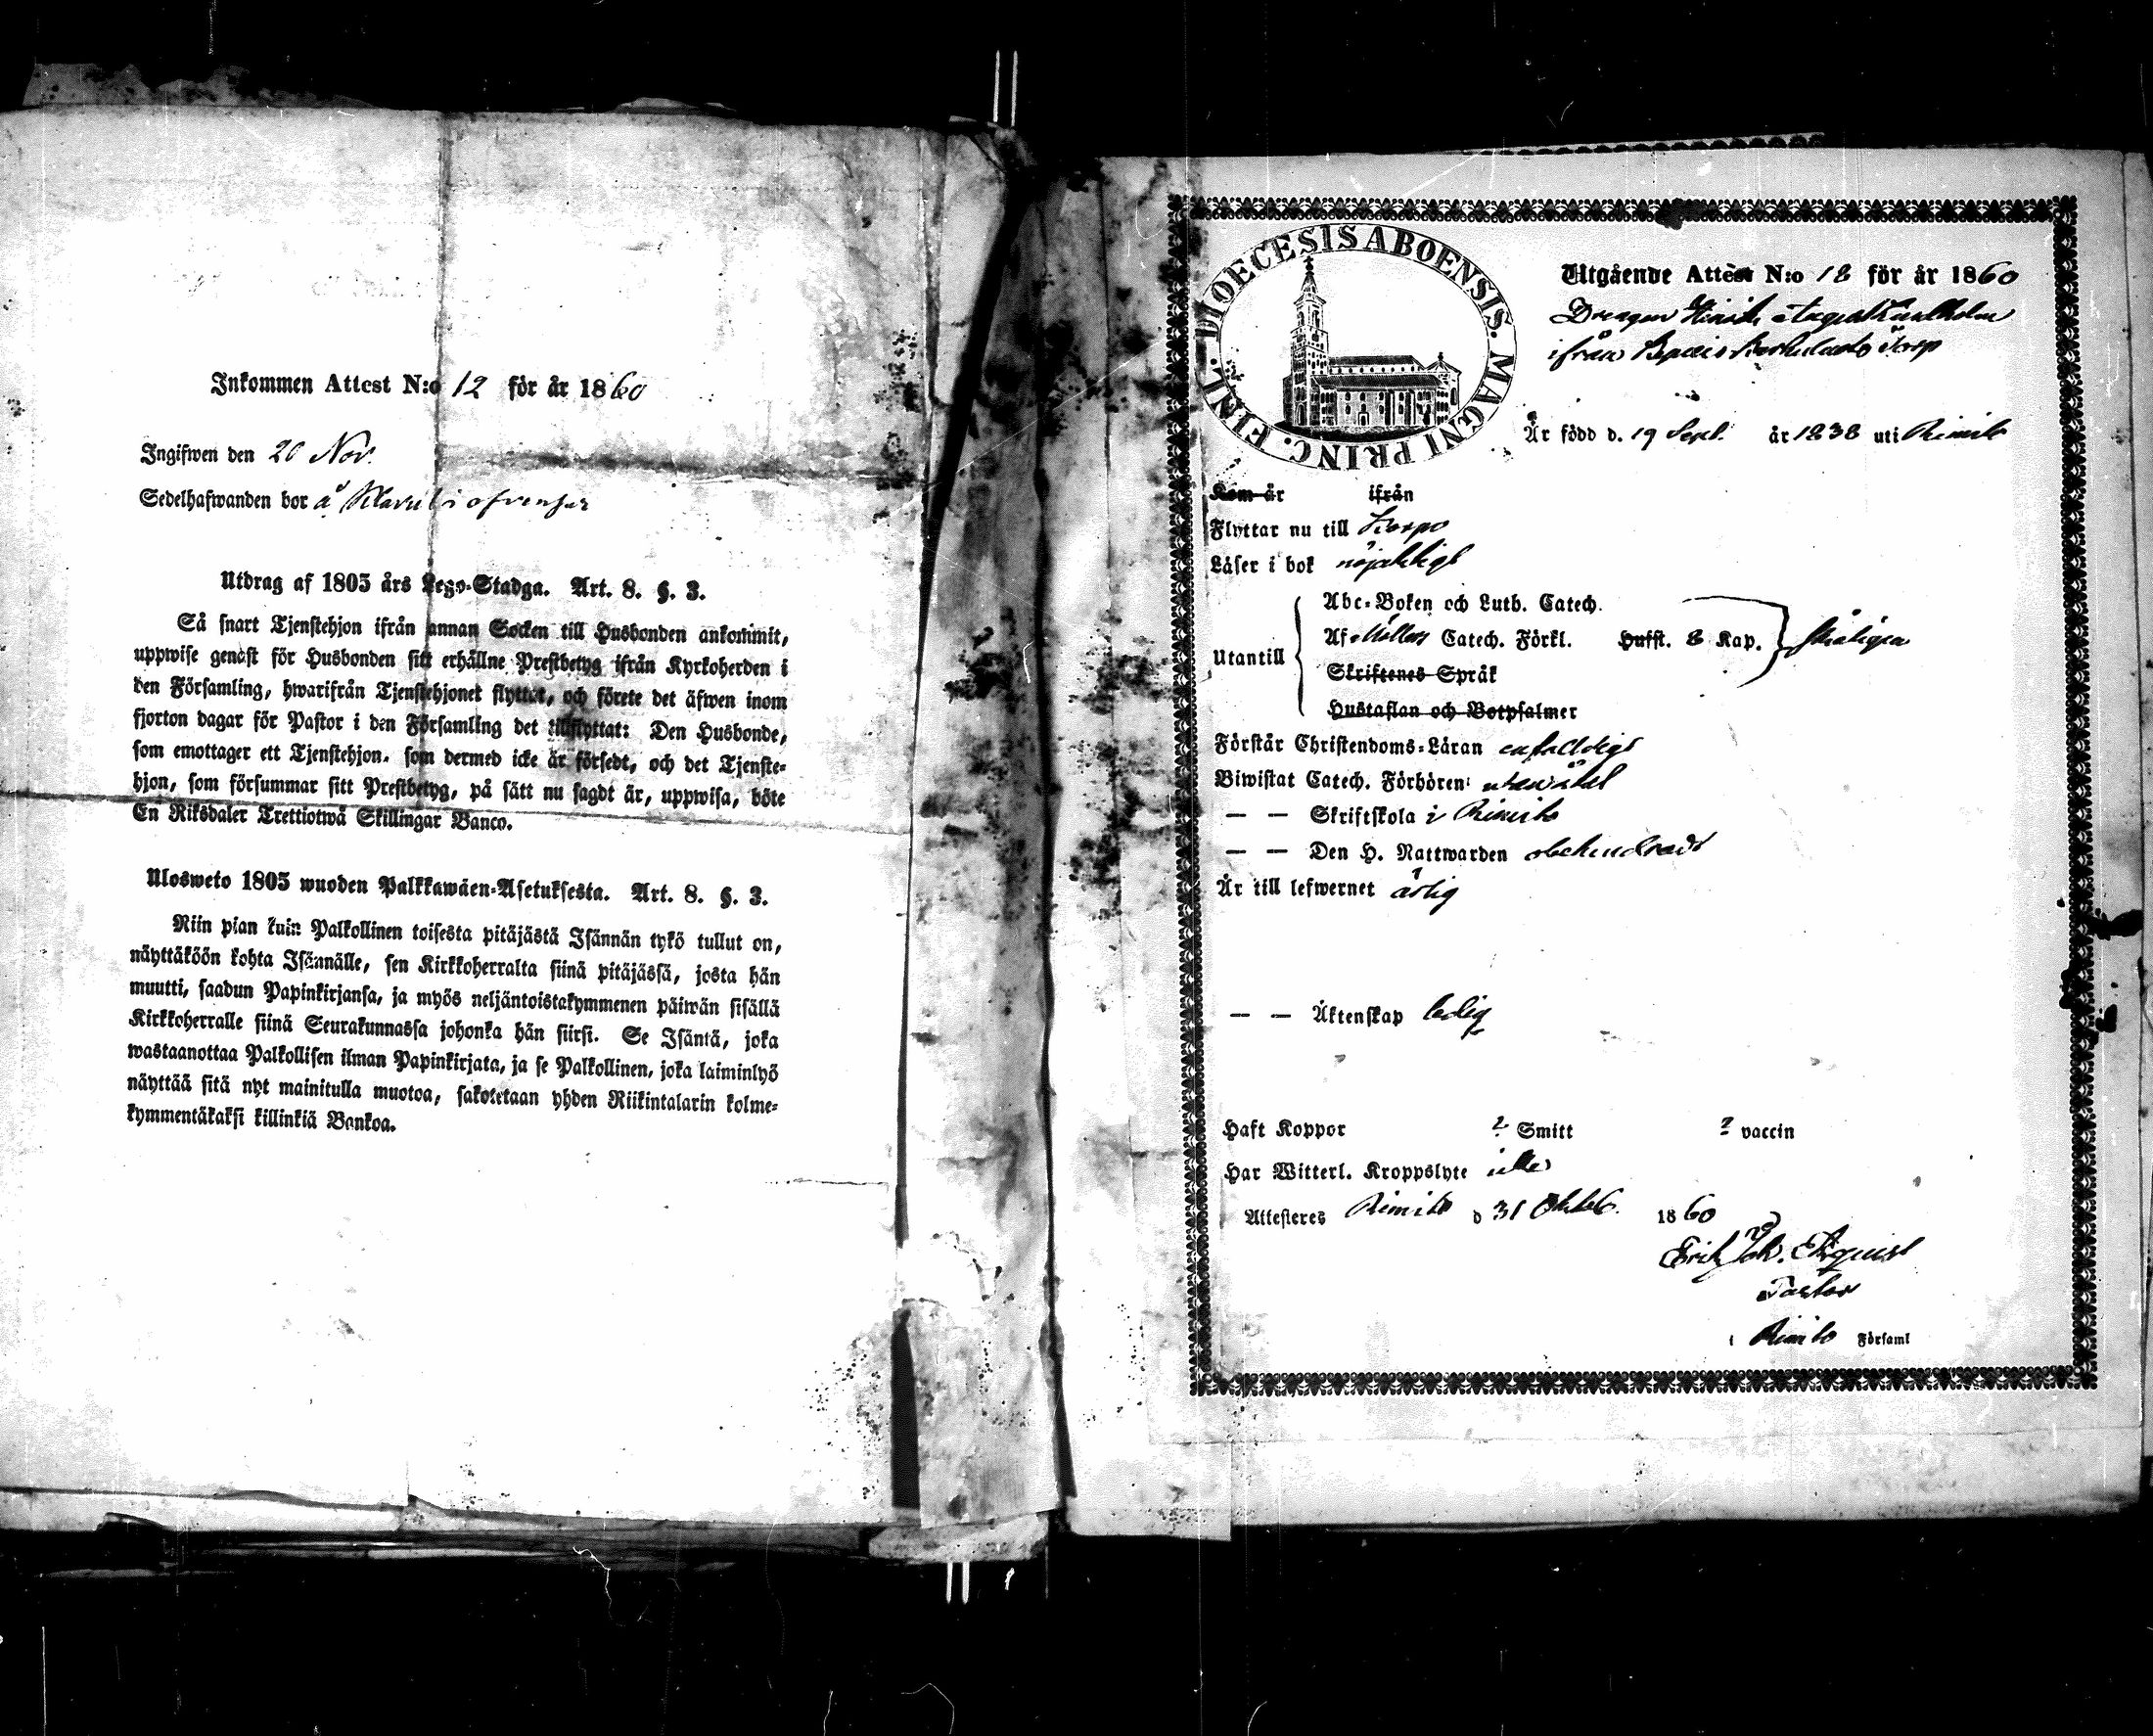 Inkommen Attest N:o 12 för år 1860
Ingifwen den 20 Nov.
Sedelhafwanden bor å
Utdrag af 1805 års Lego-Stadga. Art. 8. §. 3.
Så snart Tjenstehjon ifrån annan Socken till Husbonden ankommit,
uppwise genast för Husbonden sitt erhållne Prestbetyg ifrån Kyrkoherden i
den Församling, hwarifrån Tjenstehjonet flyttat, och förete det äfwen inom
fjorton dagar för Pastor i den Församling det tillflyttat: Den Husbonde,
som emottager ett Tjenstehjon, som dermed icke är försedt, och det Tjenste-
hjon, som försummar sitt Prestbetyg, på sätt nu sagdt är, uppwisa, böte
En Riksdaler Trettiotwå Skillingar Banco.
Ulosweto 1805 wuoden Palkkawäen-Asetuksesta. Art. 8. §. 3.
Niin pian kuin Palkollinen toisesta pitäjästä Isännän tykö tullut on,
näyttäköön kohta Isännälle, sen Kirkkoherralta siinä pitäjässä, josta hän
muutti, saadun Papinkirjansa, ja myös neljäntoistakymmenen päiwän sisällä
Kirkkoherralle siinä Seurakunnassa johonka hän siirsi. Se Isäntä, joka
wastaanottaa Palkollisen ilman Papinkirjata, ja se Palkollinen, joka laiminlyö
näyttää sitä nyt mainitulla muotoa, sakotetaan yhden Riikintalarin kolme-
kymmentäkaksi killinkiä Bankoa.
DIOECESIS ABOENSIS. MAGNI PRINC. FINL.
Utgående Attest N:o 18 för år 1860
Drengen Hinrik August
ifrån Torp
Är född d. 19 Sept. år 1838 uti Rimito
Kom år ifrån
Flyttar nu till Korpo
Läser i bok nöjaktigt
Abc-Boken och Luth. Catech.
Utantill
Af Möllers Catech. Förkl. Hufst. 8 Kap.
Skriftenes Språk
Hustaflan och Botpsalmer
Förstår Christendoms-Läran enfaldigt
Biwistat Catech. Förhören
— — Skriftskola i Rimito
— — Den H. Nattwarden obehindradt
Är till lefwernet ärlig
— — Äktenskap ledig
Haft Koppor ? Smitt ? vaccin
Har Witterl. Kroppslyte icke
Attesteres Rimito d 31 Oktob. 1860
Erik Joh. Ekquist
Pastor
i Rimito Församl